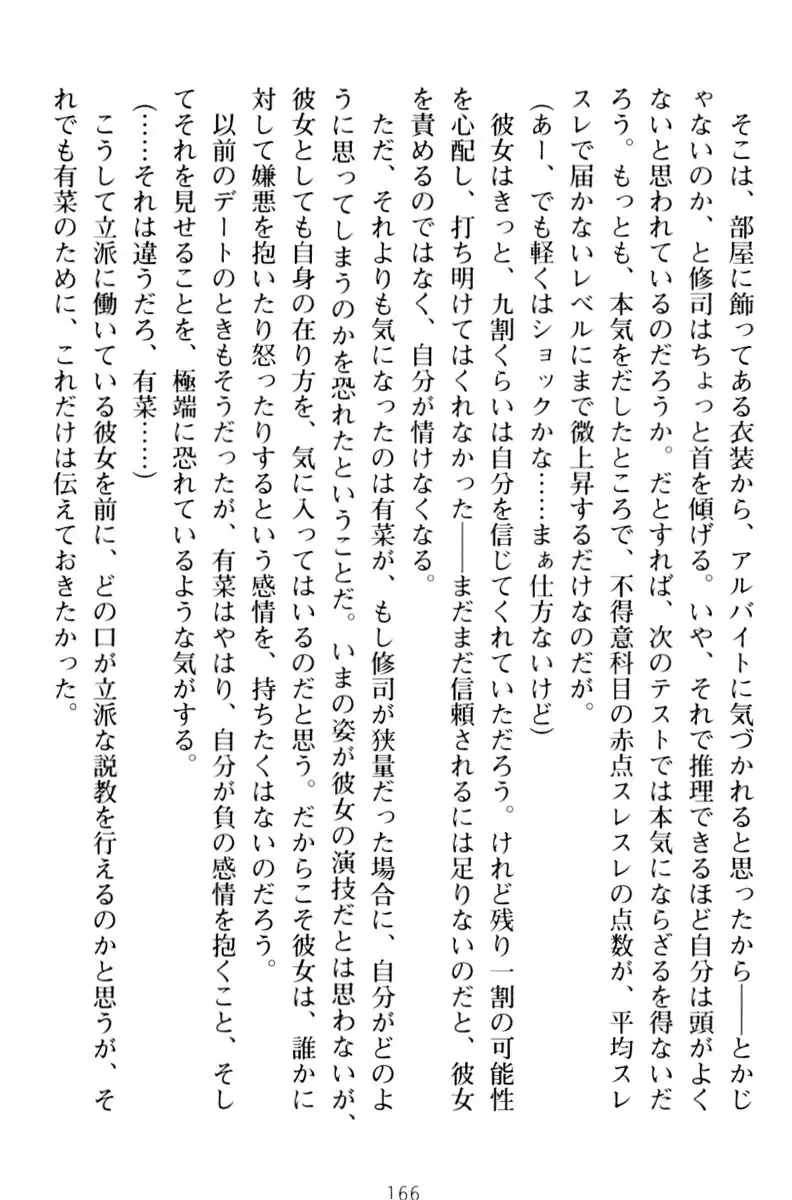 そこは、部屋に飾ってある衣装から、アルバイトに気づかれると思ったから――とかじ
ゃないのか、と修司はちょっと首を傾げる。いや、それで推理できるほど自分は頭がよく
ないと思われているのだろうか。だとすれば、次のテストでは本気にならざるを得ないだ
ろう。もっとも、本気をだしたところで、不得意科目の赤点スレスレの点数が、平均スレ
スレで届かないレベルにまで微上昇するだけなのだが。
(あー、でも軽くはショックかな……まぁ仕方ないけど)
彼女はきっと、九割くらいは自分を信じてくれていただろう。けれど残り一割の可能性
を心配し、打ち明けてはくれなかった――まだまだ信頼されるには足りないのだと、彼女
を責めるのではなく、自分が情けなくなる。
ただ、それよりも気になったのは有菜が、もし修司が狭量だった場合に、自分がどのよ
うに思ってしまうのかを恐れたということだ。いまの姿が彼女の演技だとは思わないが、
彼女としても自身の在り方を、気に入ってはいるのだと思う。だからこそ彼女は、誰かに
対して嫌悪を抱いたり怒ったりするという感情を、持ちたくはないのだろう。
以前のデートのときもそうだったが、有菜はやはり、自分が負の感情を抱くこと、そし
てそれを見せることを、極端に恐れているような気がする。
(……それは違うだろ、有菜……)
こうして立派に働いている彼女を前に、どの口が立派な説教を行えるのかと思うが、そ
れでも有菜のために、これだけは伝えておきたかった。
166